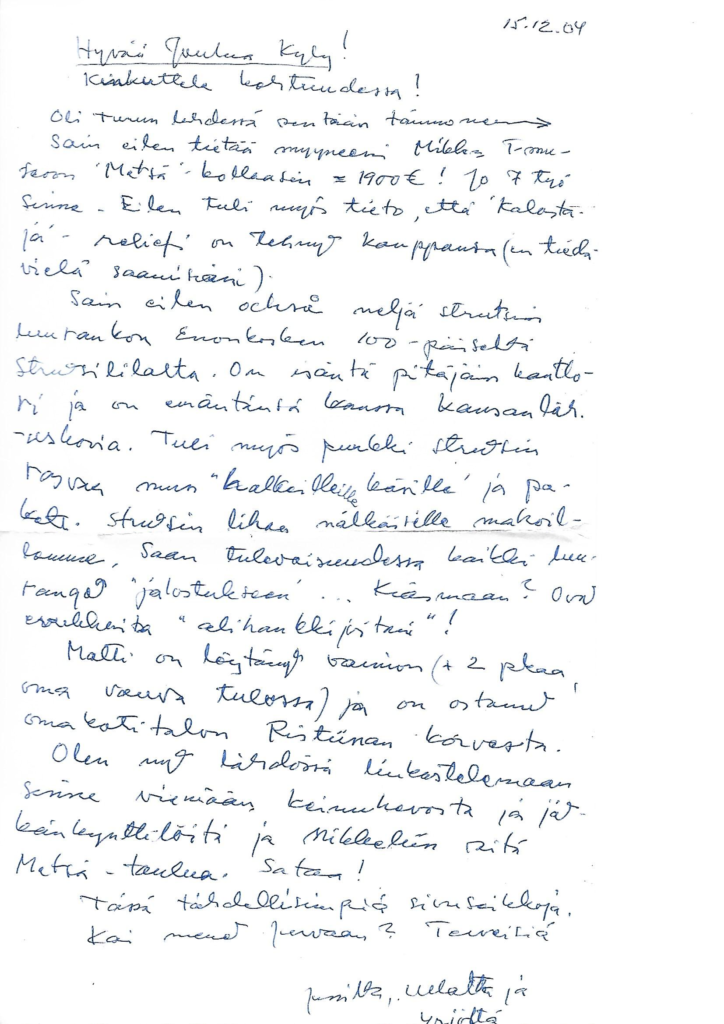 15.12.04
Hyvää Joulua Kyly!
kohtuudessa!
Oli Turun lehdessä sentään tämmönen →
Sain eilen tietää myyneeni Mikko
"Metsä"-kollaasin = 1900 €! Jo 7 työ
sinne. Eilen tuli myös tieto, että 'Kalasta-
ja'- reliefi on tehnyt kauppansa (en tiedä
vielä saamisiani).
Sain eilen ochså neljä strutsin
luurankoa Enonkosken 100-päiseltä
strutsitilalta. On isäntä pitäjän kanttori
ja on emäntänsä kanssa
Tuli myös purkki strutsin
rasvaa mun "käsille" ja pa-
ketti strutsin lihaa nälkäiselle
Saan tulevaisuudessa kaikki luu-
rangot 'jalostukseen' ... Kiasmaan? Ovat
"alihankkijoitani"!
Matti on löytänyt vaimon (+ 2 pkaa,
oma vauva tulossa) ja on ostanut
omakotitalon Ristiinan korvesta.
Olen nyt lähdössä
sinne viemään keinuhevosta ja jät-
känkynttilöitä ja Mikkeliin sitä
Metsä-taulua. Sataa!
Tässä tähdellisimpiä sivuseikkoja.
Kai menet Terveisiä
ja
Yrjöltä